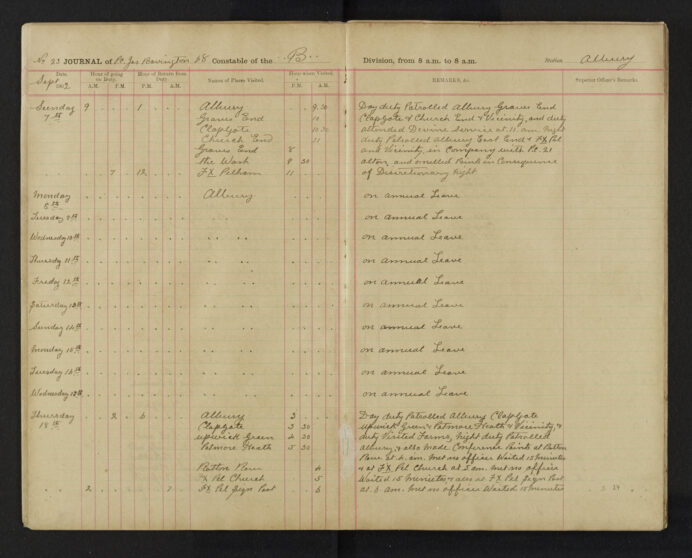 No 23 JOURNAL of P.C. Jas Bovington 68 Constable of the B.. Division, from 8 a.m. to 8 a.m. Station Albury
Date. Hour of going on Duty. Hour of Return from Duty Names of Places Visited. Hour when Visited. REMARKS, &c. Superior Officer's Remarks.
Sept A.M. P.M. P.M. A.M. P.M. A.M.
Sunday 9 1 Albury 9.30 Day duty Patrolled Albury Graves End
7th Graves End 10 Clapgate & Church End & Vicinity, and duty
Clapgate 10 30 attended Divine Service at 11. am. Night
Church End 11 duty Patrolled Albury East End & FX Pel
Graves End 8 and Vicinity, in Company with P.C. 21
The Wash 9 30 and in Consequence
7 12 FX Pelham 11 of Discretionary Night
Monday 8th Albury on annual Leave
Tuesday 9th on annual Leave
Wednesday 10th on annual Leave
Thursday 11th on annual Leave
Friday 12th on annual Leave
Saturday 13th on annual Leave
Sunday 14th on annual Leave
Monday 15th on annual Leave
Tuesday 16th on annual Leave
Wednesday 17th on annual Leave
Thursday 2 6 Albury 3 Day duty Patrolled Albury Clapgate
18th Clapgate 3 30 Upwick Green & Patmore Heath & Vicinity, &
Upwick Green 4 30 duty Visited Farms, Night duty Patrolled
Patmore Heath 5 30 Albury, & also made Conference Points at
4 at 4. am. met no officer Waited 15 minutes
FX Pel Church 5 & at FX Pel Church at 5 am. met no officer
Waited 15 Minutes & also at FX Pel Sign Post
2 7 FX Pel Sign Post 6 at 6 am. met no officer Waited 15 minutes